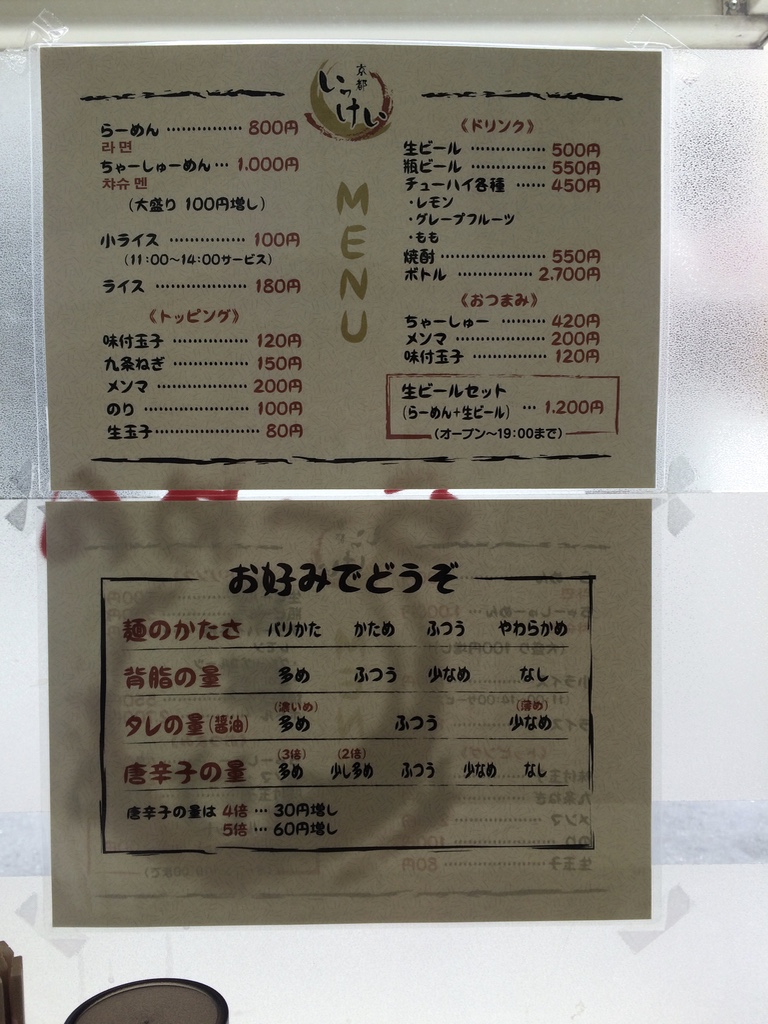 京都
いっけい
MENU
らーめん ................ 800円
라면
ちゃーしゅーめん ... 1,000円
챠슈멘
(大盛り 100円増し)
小ライス ................ 100円
(11:00〜14:00サービス)
ライス ................ 180円
《トッピング》
味付玉子 ................ 120円
九条ねぎ ................ 150円
メンマ ................ 200円
のり ................ 100円
生玉子 ................ 80円
《ドリンク》
生ビール ................ 500円
瓶ビール ................ 550円
チューハイ各種 ...... 450円
・レモン
・グレープフルーツ
・もも
焼酎 ................ 550円
ボトル ................ 2,700円
《おつまみ》
ちゃーしゅー ......... 420円
メンマ ................ 200円
味付玉子 ............... 120円
生ビールセット
(らーめん+生ビール) ... 1,200円
(オープン〜19:00まで)
お好みでどうぞ
麺のかたさ バリかた かため ふつう やわらかめ
背脂の量 多め ふつう 少なめ なし
(濃いめ) (薄め)
タレの量(醤油) 多め ふつう 少なめ
(3倍) (2倍)
唐辛子の量 多め 少し多め ふつう 少なめ なし
唐辛子の量は 4倍 … 30円増し
5倍 … 60円増し